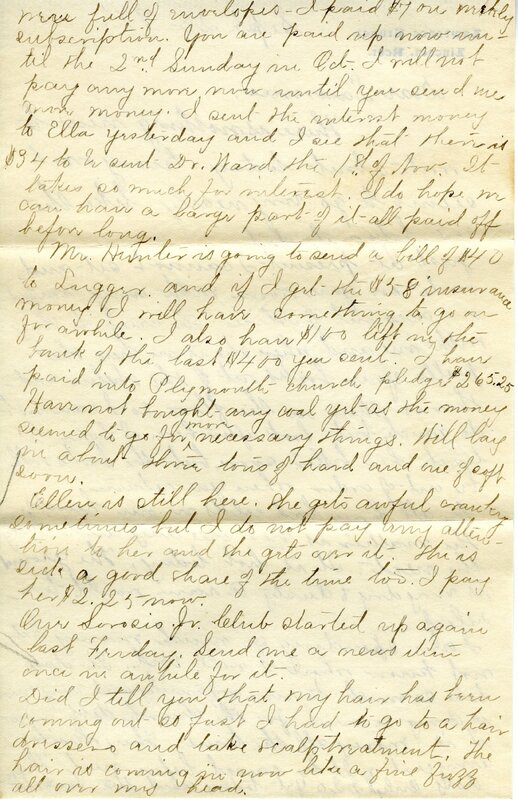 were full of envelopes - I paid $7 on weekly
subscription. You are paid up now un-
til the 2nd Sunday in Oct. I will not
pay any more now until you send me
more money. I sent the interest money
to Ella yesterday and I see that there is
$34 to be sent Dr. Ward the 1st of Nov. It
takes so much for interest. I do hope we
can have a large part of it all paid off
before long.
Mr. Hunter is going to send a bill of $40
to and if I get the $58 insurance
money I will have something to go on
for awhile. I also have $100 left in the
bank of the last $400 you sent. I have
paid into Plymouth church pledge $265.25
Have not bought any coal yet as the money
seemed to go for more necessary things. Will buy
in about three tons of hard and one of soft
soon.
Ellen is still here. She gets awful cranky
sometimes but I do not pay any atten-
tion to her and she gets over it. She is
sick a good share of the time too. I pay
her $2.25 now.
Our Sorosis Jr. Club started up again
last Friday. Send me a news item
once in awhile for it.
Did I tell you that my hair has been
coming out so fast I had to go to a hair
dressers and take scalp treatment. The
hair is coming in now like a fine fuzz
all over my head.